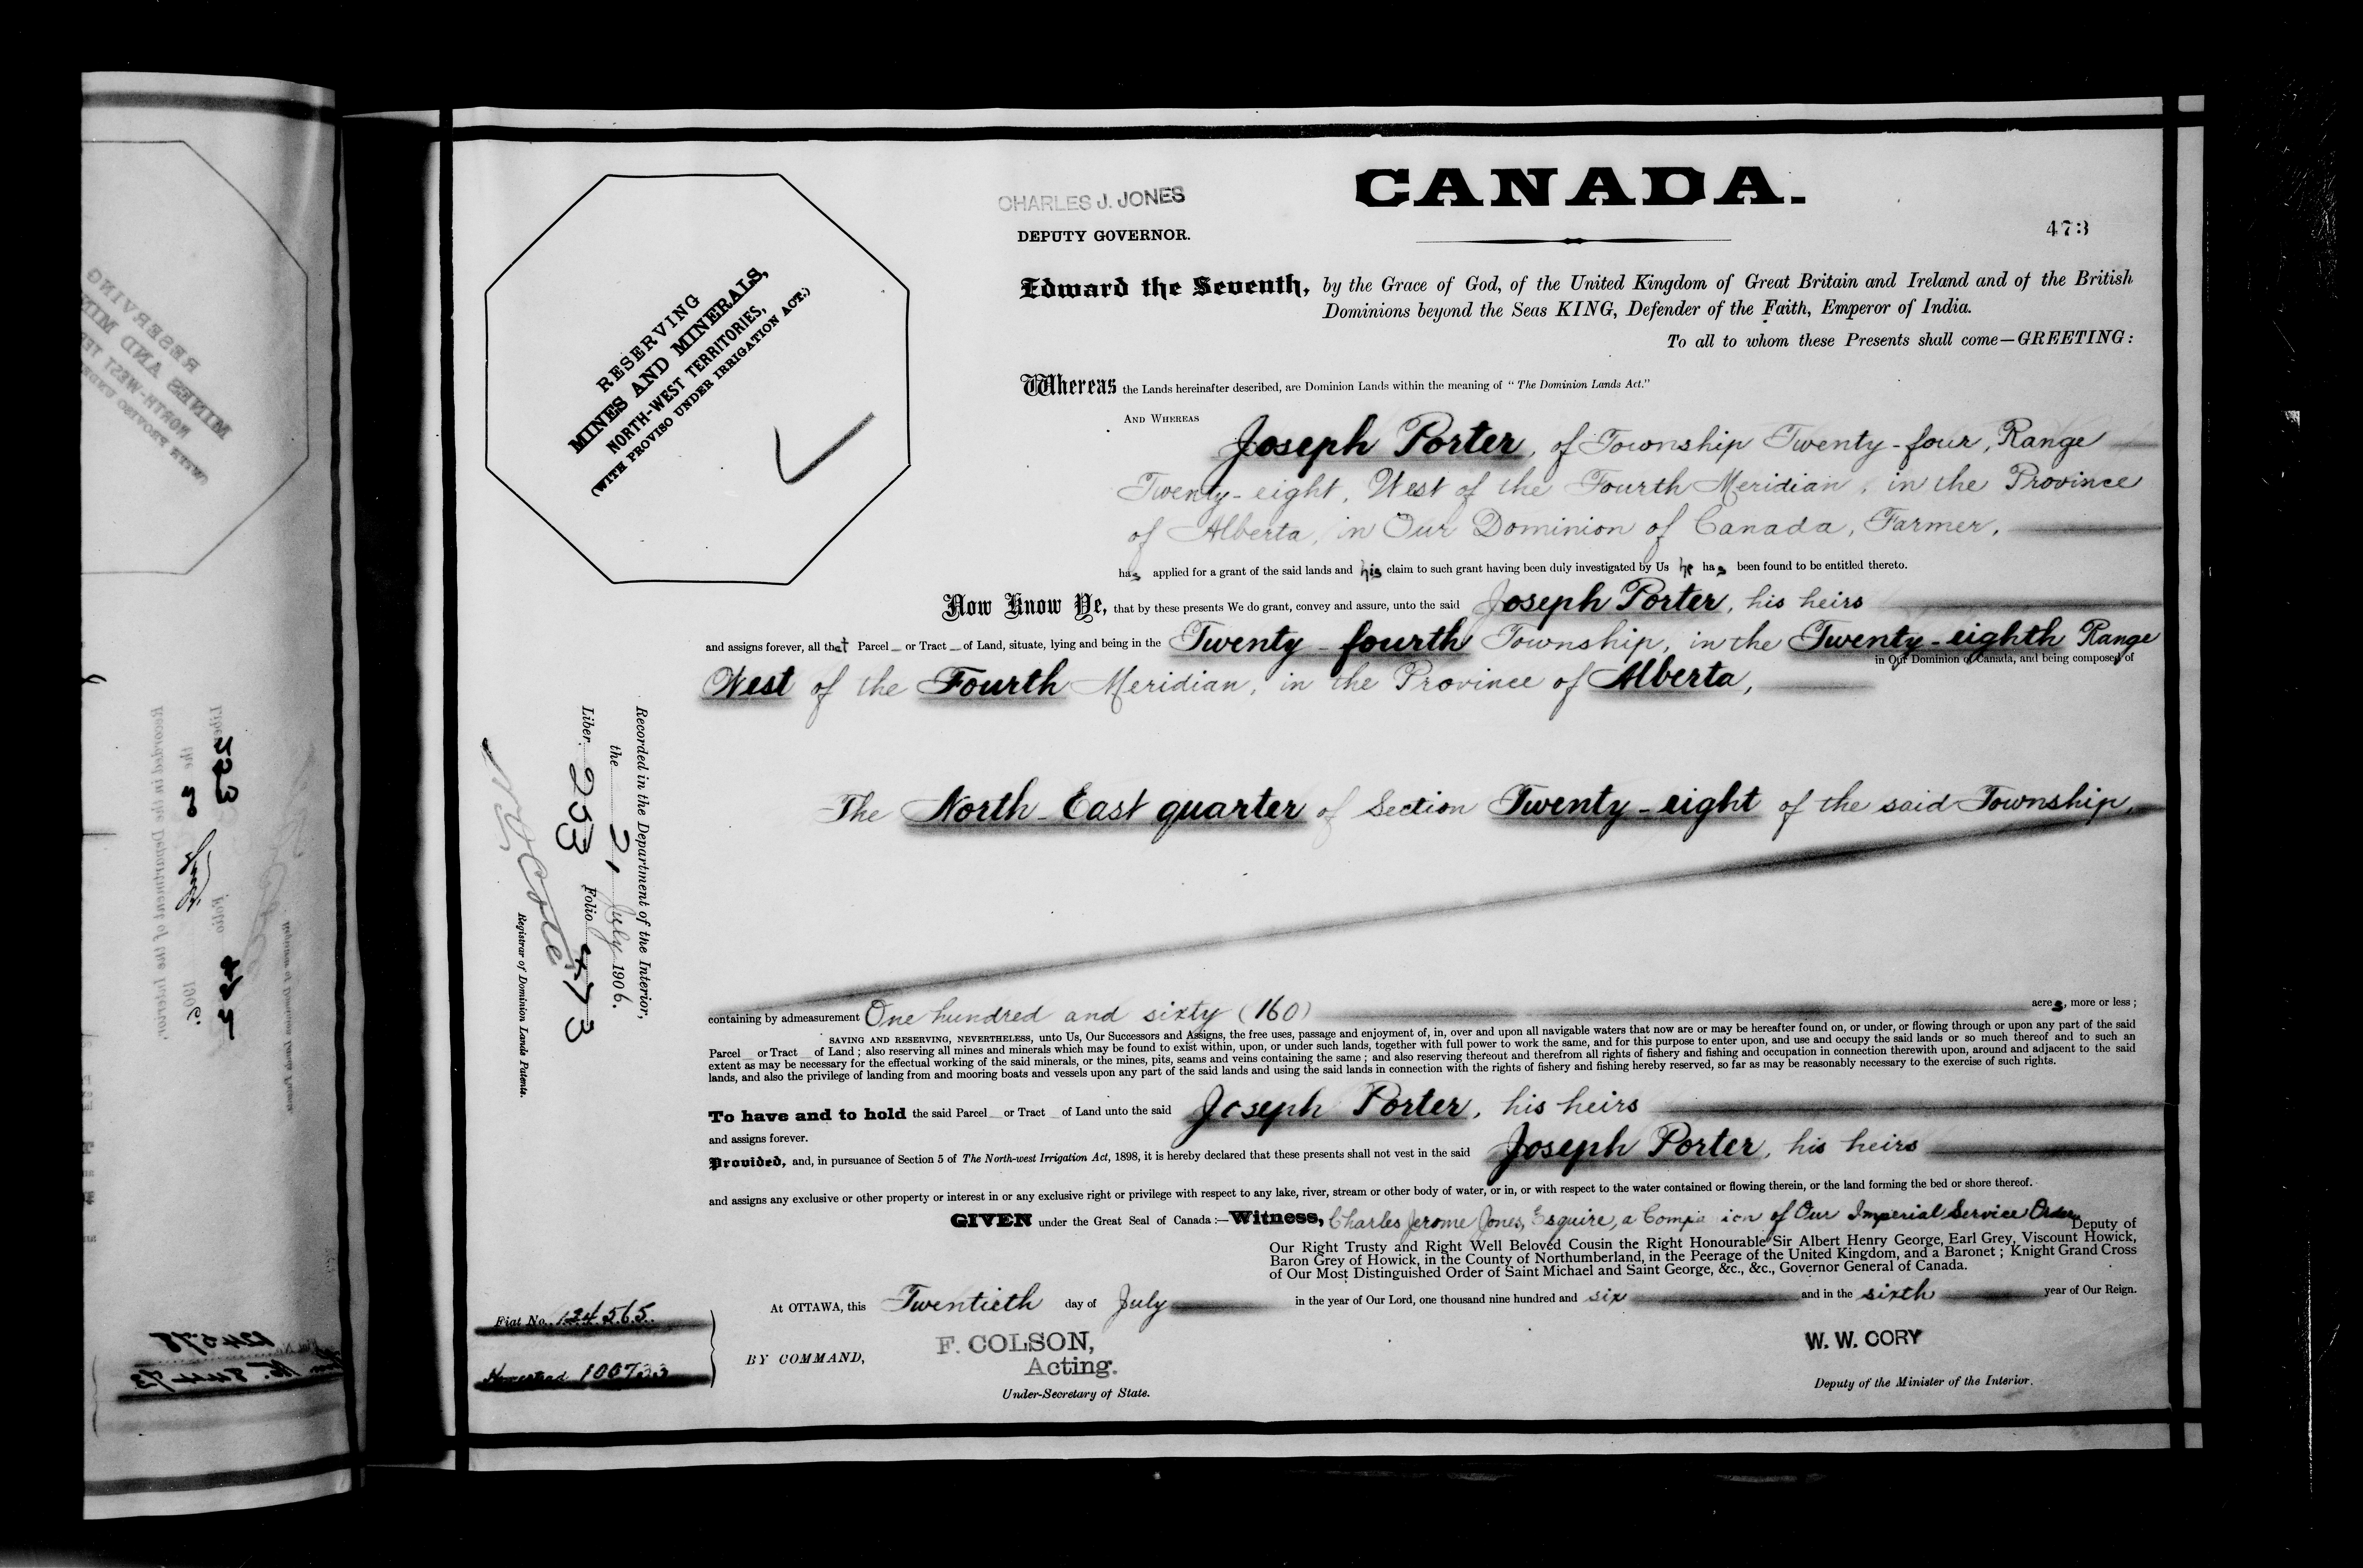 CHARLES J. JONES
DEPUTY GOVERNOR.
CANADA.
473
RESERVING
MINES AND MINERALS,
NORTH-WEST TERRITORIES,
(WITH PROVISO UNDER IRRIGATION ACT.)
Edward the Seventh, by the Grace of God, of the United Kingdom of Great Britain and Ireland and of the British
Dominions beyond the Seas KING, Defender of the Faith, Emperor of India.
To all to whom these Presents shall come—GREETING:
Whereas the Lands hereinafter described, are Dominion Lands within the meaning of "The Dominion Lands Act."
AND WHEREAS
Joseph Porter, of Township Twenty-four, Range
Twenty-eight, West of the Fourth Meridian, in the Province
of Alberta, in Our Dominion of Canada, Farmer,
has applied for a grant of the said lands and his claim to such grant having been duly investigated by Us he has been found to be entitled thereto.
Now Know Ye, that by these presents We do grant, convey and assure, unto the said Joseph Porter, his heirs
and assigns forever, all that Parcel or Tract of Land, situate, lying and being in the Twenty-fourth Township, in the Twenty-eighth Range
West of the Fourth Meridian, in the Province of Alberta, in Our Dominion of Canada, and being composed of
The North-East quarter of Section Twenty-eight of the said Township,
Recorded in the Department of the Interior,
the 21 July 1906.
Liber 253 Folio 473
Registrar of Dominion Lands Patents.
containing by admeasurement One hundred and sixty (160) acres, more or less;
SAVING AND RESERVING, NEVERTHELESS, unto Us, Our Successors and Assigns, the free uses, passage and enjoyment of, in, over and upon all navigable waters that now are or may be hereafter found on, or under, or flowing through or upon any part of the said
Parcel or Tract of Land; also reserving all mines and minerals which may be found to exist within, upon, or under such lands, together with full power to work the same, and for this purpose to enter upon, and use and occupy the said lands or so much thereof and to such an
extent as may be necessary for the effectual working of the said minerals, or the mines, pits, seams and veins containing the same; and also reserving thereout and therefrom all rights of fishery and fishing and occupation in connection therewith upon, around and adjacent to the said
lands, and also the privilege of landing from and mooring boats and vessels upon any part of the said lands and using the said lands in connection with the rights of fishery and fishing hereby reserved, so far as may be reasonably necessary to the exercise of such rights.
To have and to hold the said Parcel or Tract of Land unto the said Joseph Porter, his heirs
and assigns forever.
Provided, and, in pursuance of Section 5 of The North-west Irrigation Act, 1898, it is hereby declared that these presents shall not vest in the said Joseph Porter, his heirs
and assigns any exclusive or other property or interest in or any exclusive right or privilege with respect to any lake, river, stream or other body of water, or in, or with respect to the water contained or flowing therein, or the land forming the bed or shore thereof.
GIVEN under the Great Seal of Canada:—Witness, Charles Jerome Jones, Esquire, a Companion of Our Imperial Service Order, Deputy of
Our Right Trusty and Right Well Beloved Cousin the Right Honourable Sir Albert Henry George, Earl Grey, Viscount Howick,
Baron Grey of Howick, in the County of Northumberland, in the Peerage of the United Kingdom, and a Baronet; Knight Grand Cross
of Our Most Distinguished Order of Saint Michael and Saint George, &c., &c., Governor General of Canada.
At OTTAWA, this Twentieth day of July in the year of Our Lord, one thousand nine hundred and six and in the sixth year of Our Reign.
Fiat No. 124565.
Homestead
BY COMMAND,
F. COLSON,
Acting.
Under-Secretary of State.
W. W. CORY
Deputy of the Minister of the Interior.